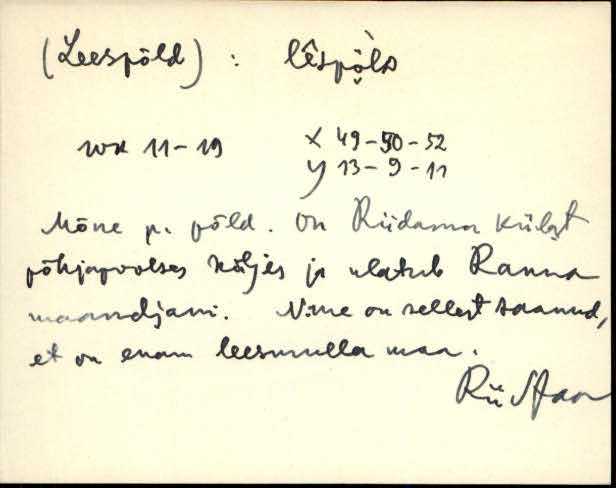 (Leespõld) : lêspõ̭lᴅ
WK 11-19 X 49-50-52
y 13-9-11
Mõne p. põld. On Riidama külast
põhjapoolses küljes ja ulatub Ranna
maandjani. Nime on sellest saanud,
et on enam leesmulla maa.
Rii